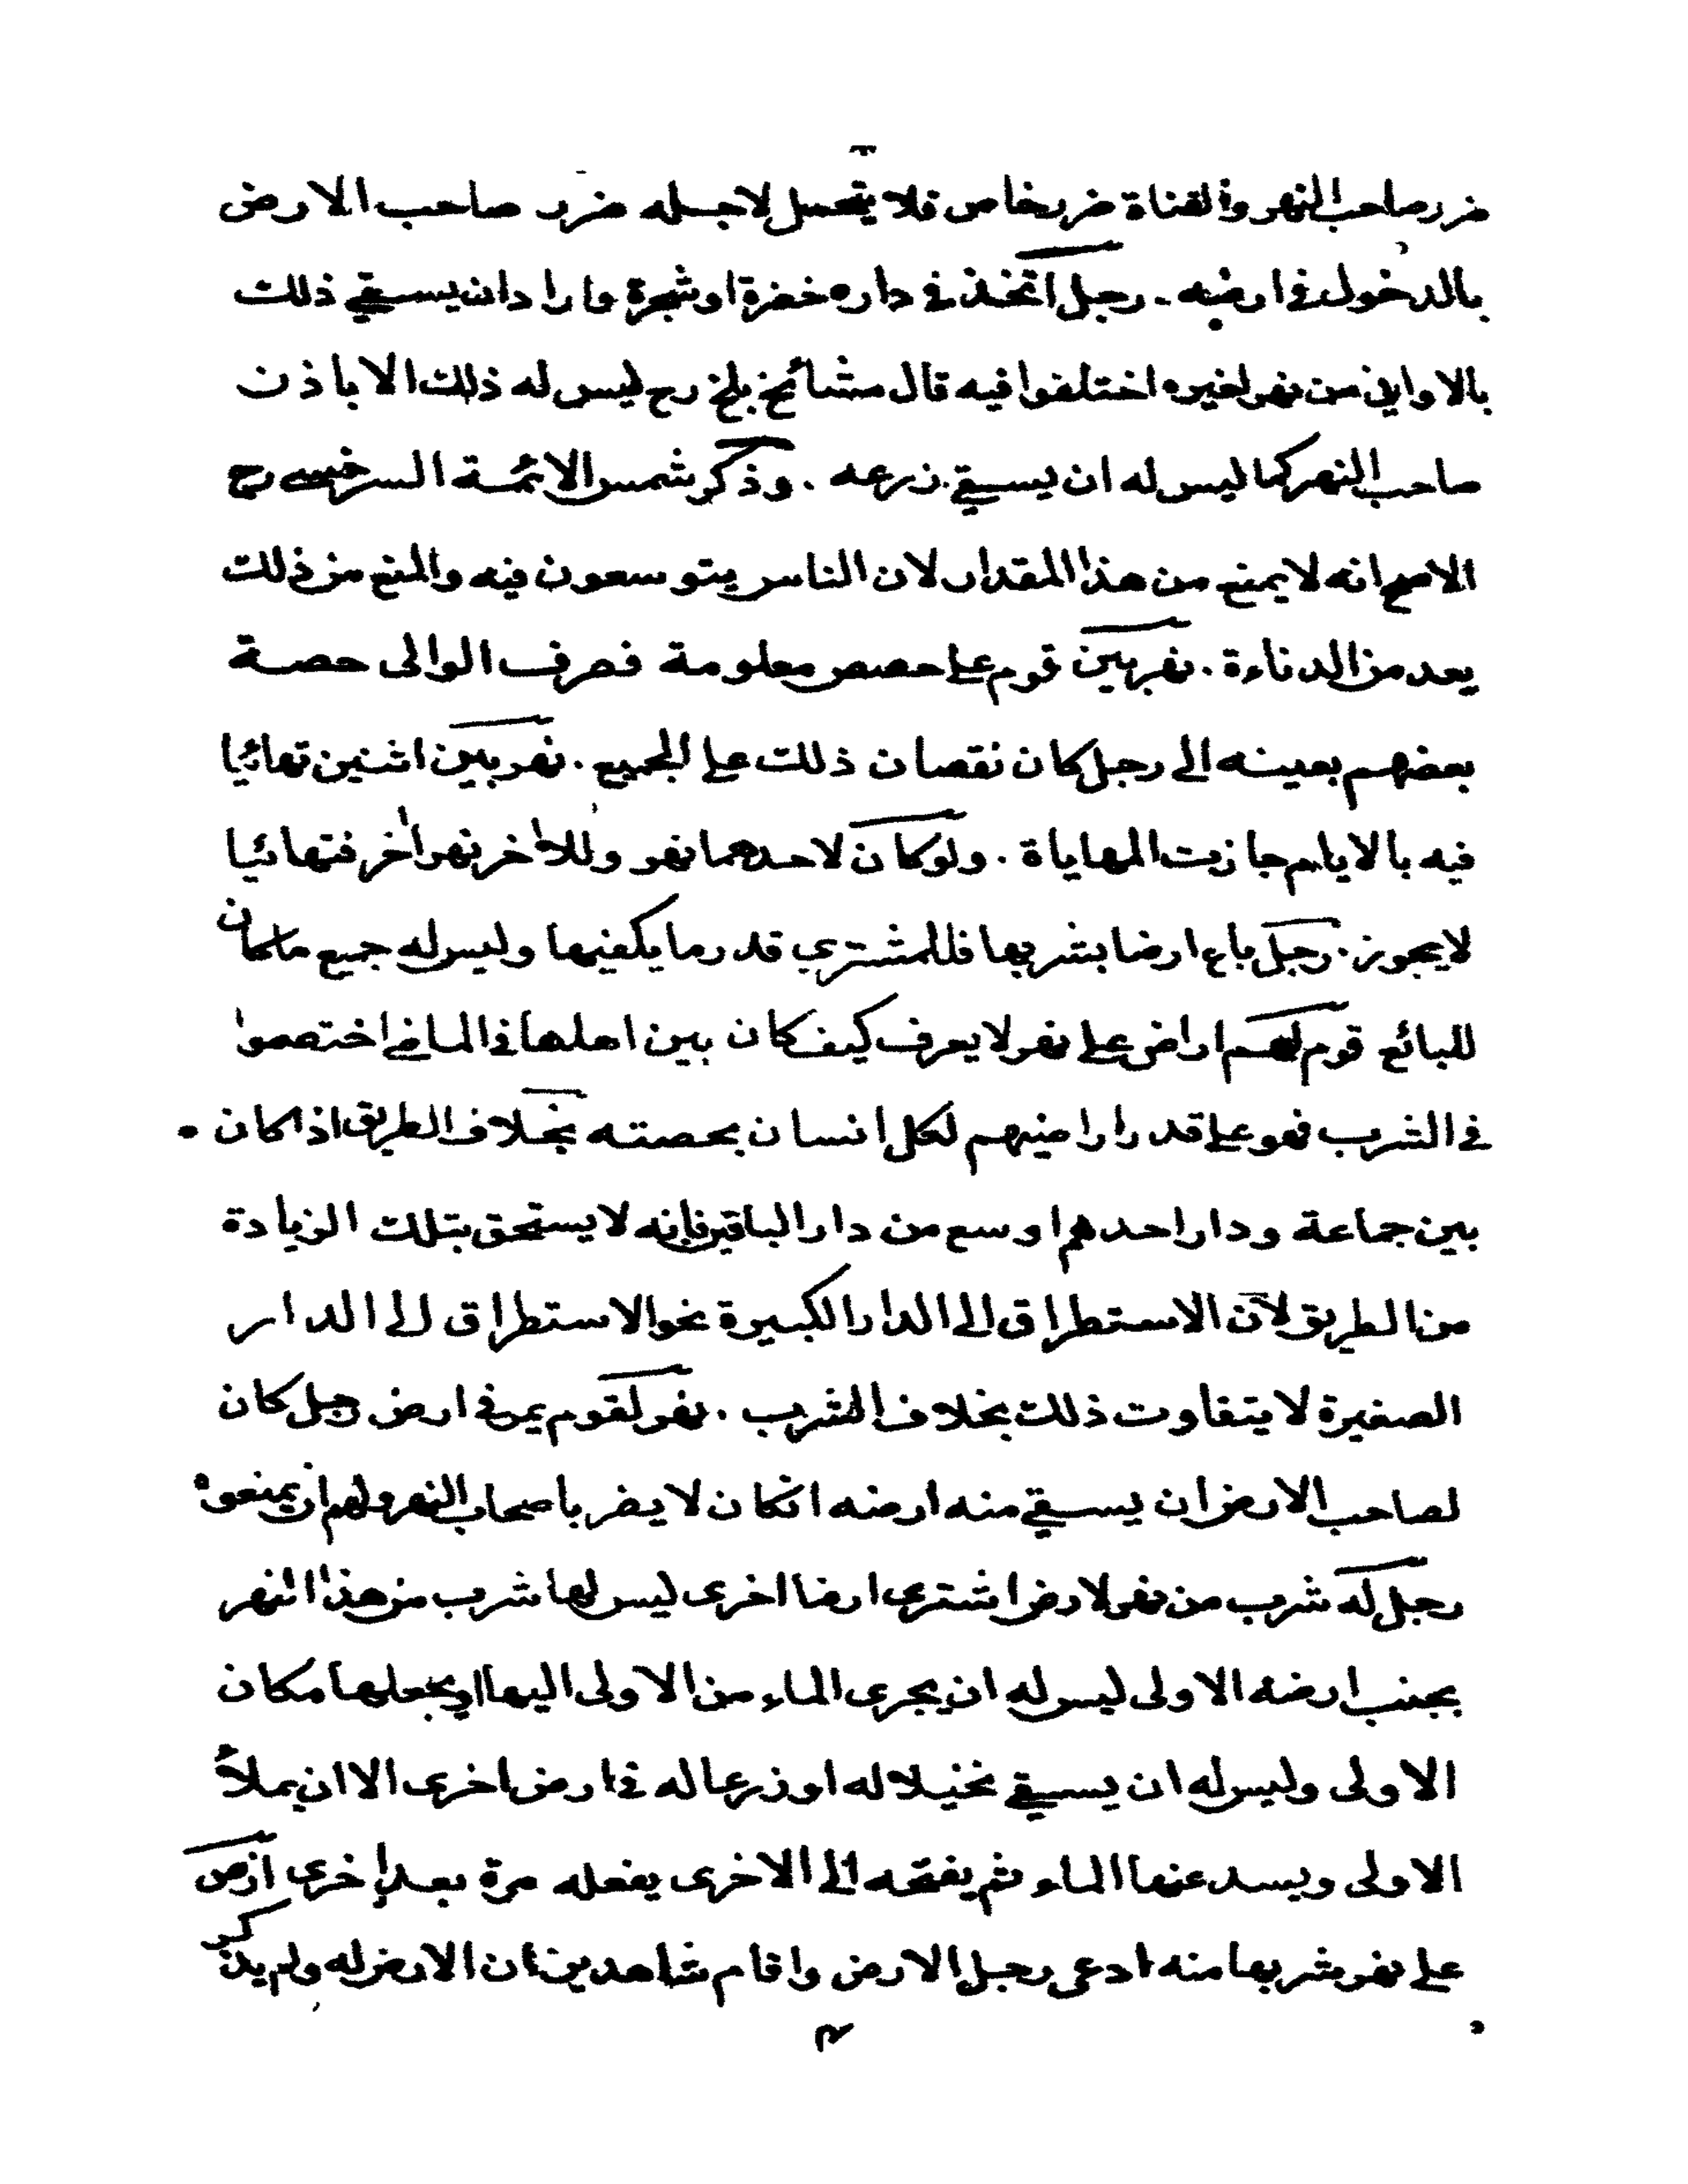 ضرر صاحب النهر والقناة ضرر خاص فلا يتحمل لاجله ضرر صاحب الارض
بالدخول في ارضه . رجل اتخذ في داره خضرة او شجرة وارادان يسقي ذلك
بالاواني من نهر لغيره اختلفوا فيه قال مشائخ بلخ رح ليس له ذلك الا باذن
صاحب النهر كما ليس له ان يسقي زرعه . وذكر شمس الائمة السرخسي رح
الاصح انه لا يمنع من هذا المقدار لان الناس يتوسعون فيه والمنع من ذلك
يعد من الدناءة . نهر بين قوم على حصص معلومة فصرف الوالى حصة
بعضهم بعينه الى رجل كان نقصان ذلك على الجميع . نهر بين اثنين تهائيا
فيه بالايام جازت المهاياة . ولو كان لاحدهما نهر وللآخر نهر آخر فتهائيا
لا يجوز . رجل باع ارضا بشربها فللمشتري قدر ما يكفيها وليس له جميع ما كان
للبائع قوم لهم اراض على نهر لا يعرف كيف كان بين اهلها في الماضي اختصموا
في الشرب فهو على قدر اراضيهم لكل انسان بحصته بخلاف الطريق اذا كان .
بين جماعة ودار احدهم اوسع من دار الباقين فانه لا يستحق بتلك الزيادة
من الطريق لآن الاستطراق الى الدار الكبيرة نحو الاستطراق الى الدار
الصغيرة لا يتفاوت ذلك بخلاف الشرب . نهر لقوم يمر في ارض رجل كان
لصاحب الارض ان يسقي منه ارضه انكان لا يضر باصحاب النهر ولهم ان يمنعوه
رجل له شرب من نهر لارض اشترى ارضا اخرى ليس لها شرب من هذا النهر
بجنب ارضه الاولى ليس له ان يجرى الماء من الاولى اليها او يجعلها مكان
الاولى وليس له ان يسقي نخيلا له او زرعا له في ارض اخرى الا ان يملأ
الاولى ويسد عنها الماء ثم يفتحه الى الاخرى يفعله مرة بعد اخرى ارض
على نهر شربها منه ادعى رجل الارض واقام شاهدين ان الارض له ولم يذكر